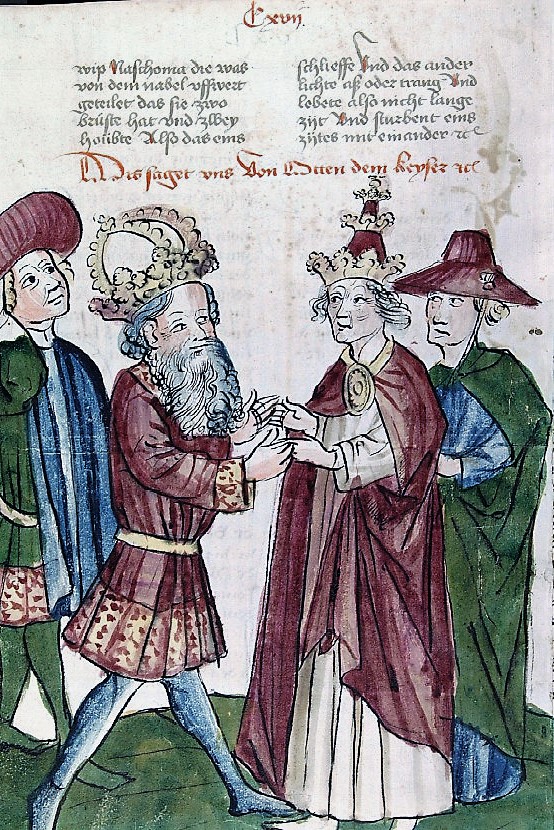 Cxvij
wip Naschoma die was
von dem nabel vffwert
geteilet das sie zwo
brüste hat vnd zwey
houbte Also das eins
schlieffe Vnd das ander
lichte aß oder trang Vnd
lebete also nicht lange
zijt Vnd sturbent eins
zijtes mit einander ꝛc
Dis saget vns Von Otten dem keyser ꝛc